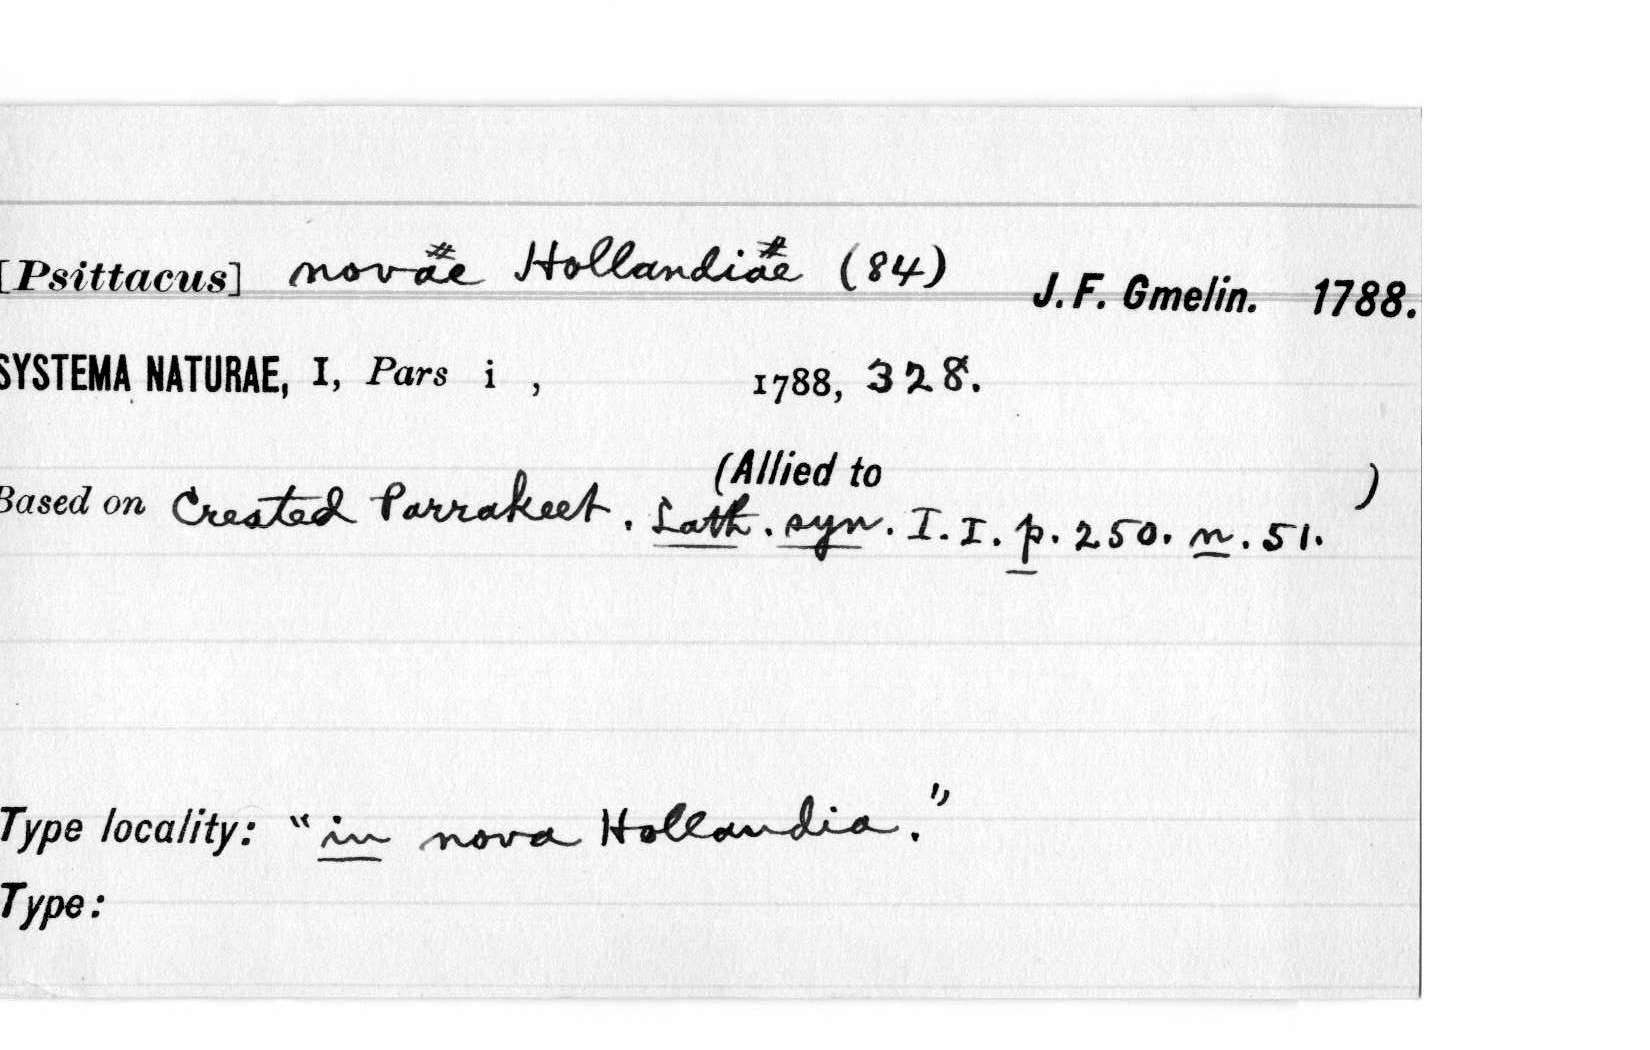 [Psittacus] novae Hollandiae (84) J. F. Gmelin. 1788.
SYSTEMA NATURAE, I, Pars i , 1788, 328.
(Allied to )
Based on Crested Parrakeet. Lath. syn. I. I. p. 250. n. 51.
Type locality: "in nova Hollandia."
Type: